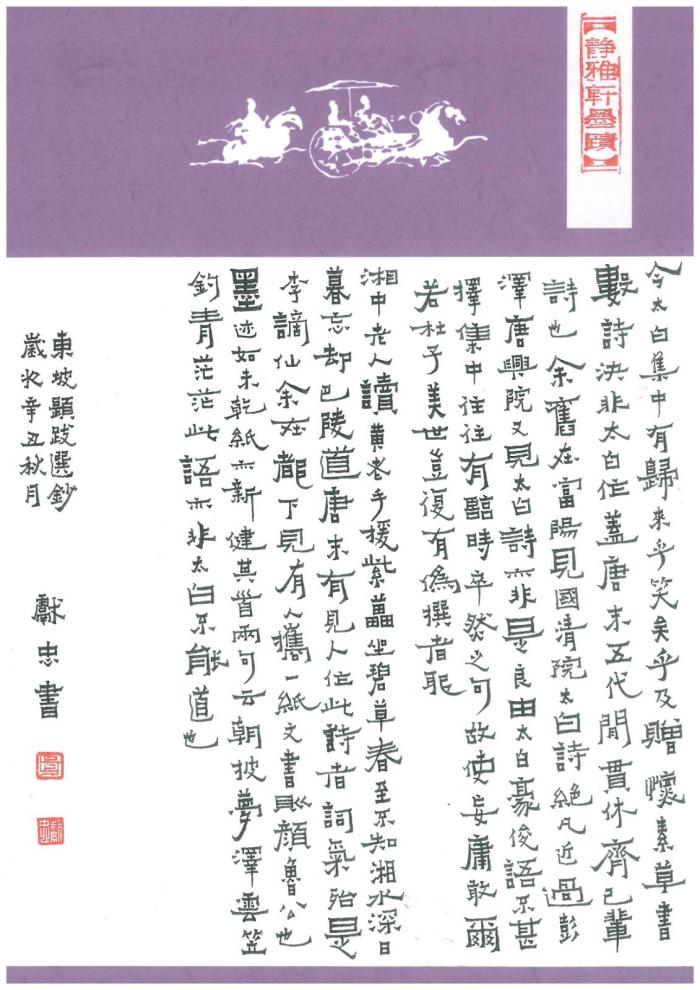 【静雅軒墨蹟】
今太白集中有歸來乎笑矣乎及贈懷素草書
數詩決非太白作蓋唐末五代間貫休齊己輩
詩也余舊在富陽見國清院太白詩絕凡近過彭
澤唐興院又見太白詩亦非是良由太白豪俊語不甚
擇集中往往有臨時卒然之句故使妄庸敢爾
若杜子美世豈復有偽撰者耶
湘中老人讀黃老手援紫藟坐碧草春至不知湘水深日
暮忘却巴陵道唐末有見人作此詩者詞氣殆是
李謫仙余在都下見有人攜一紙文書則顏魯公也
墨迹如未乾紙亦新健其首兩句云朝披夢澤雲笠
釣青茫茫此語亦非太白不能道也
東坡題跋選鈔
歲次辛丑秋月
獻忠書